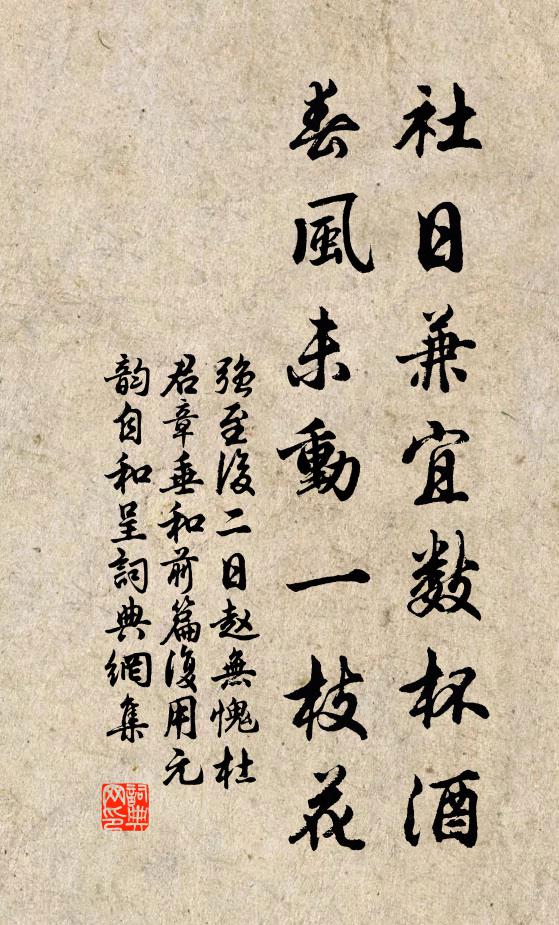 社日兼宜數杯酒
春風未動一枝花
強至後二日趙無愧杜
君章垂和前篇復用元
韵自和呈詞典網集
詞典网印